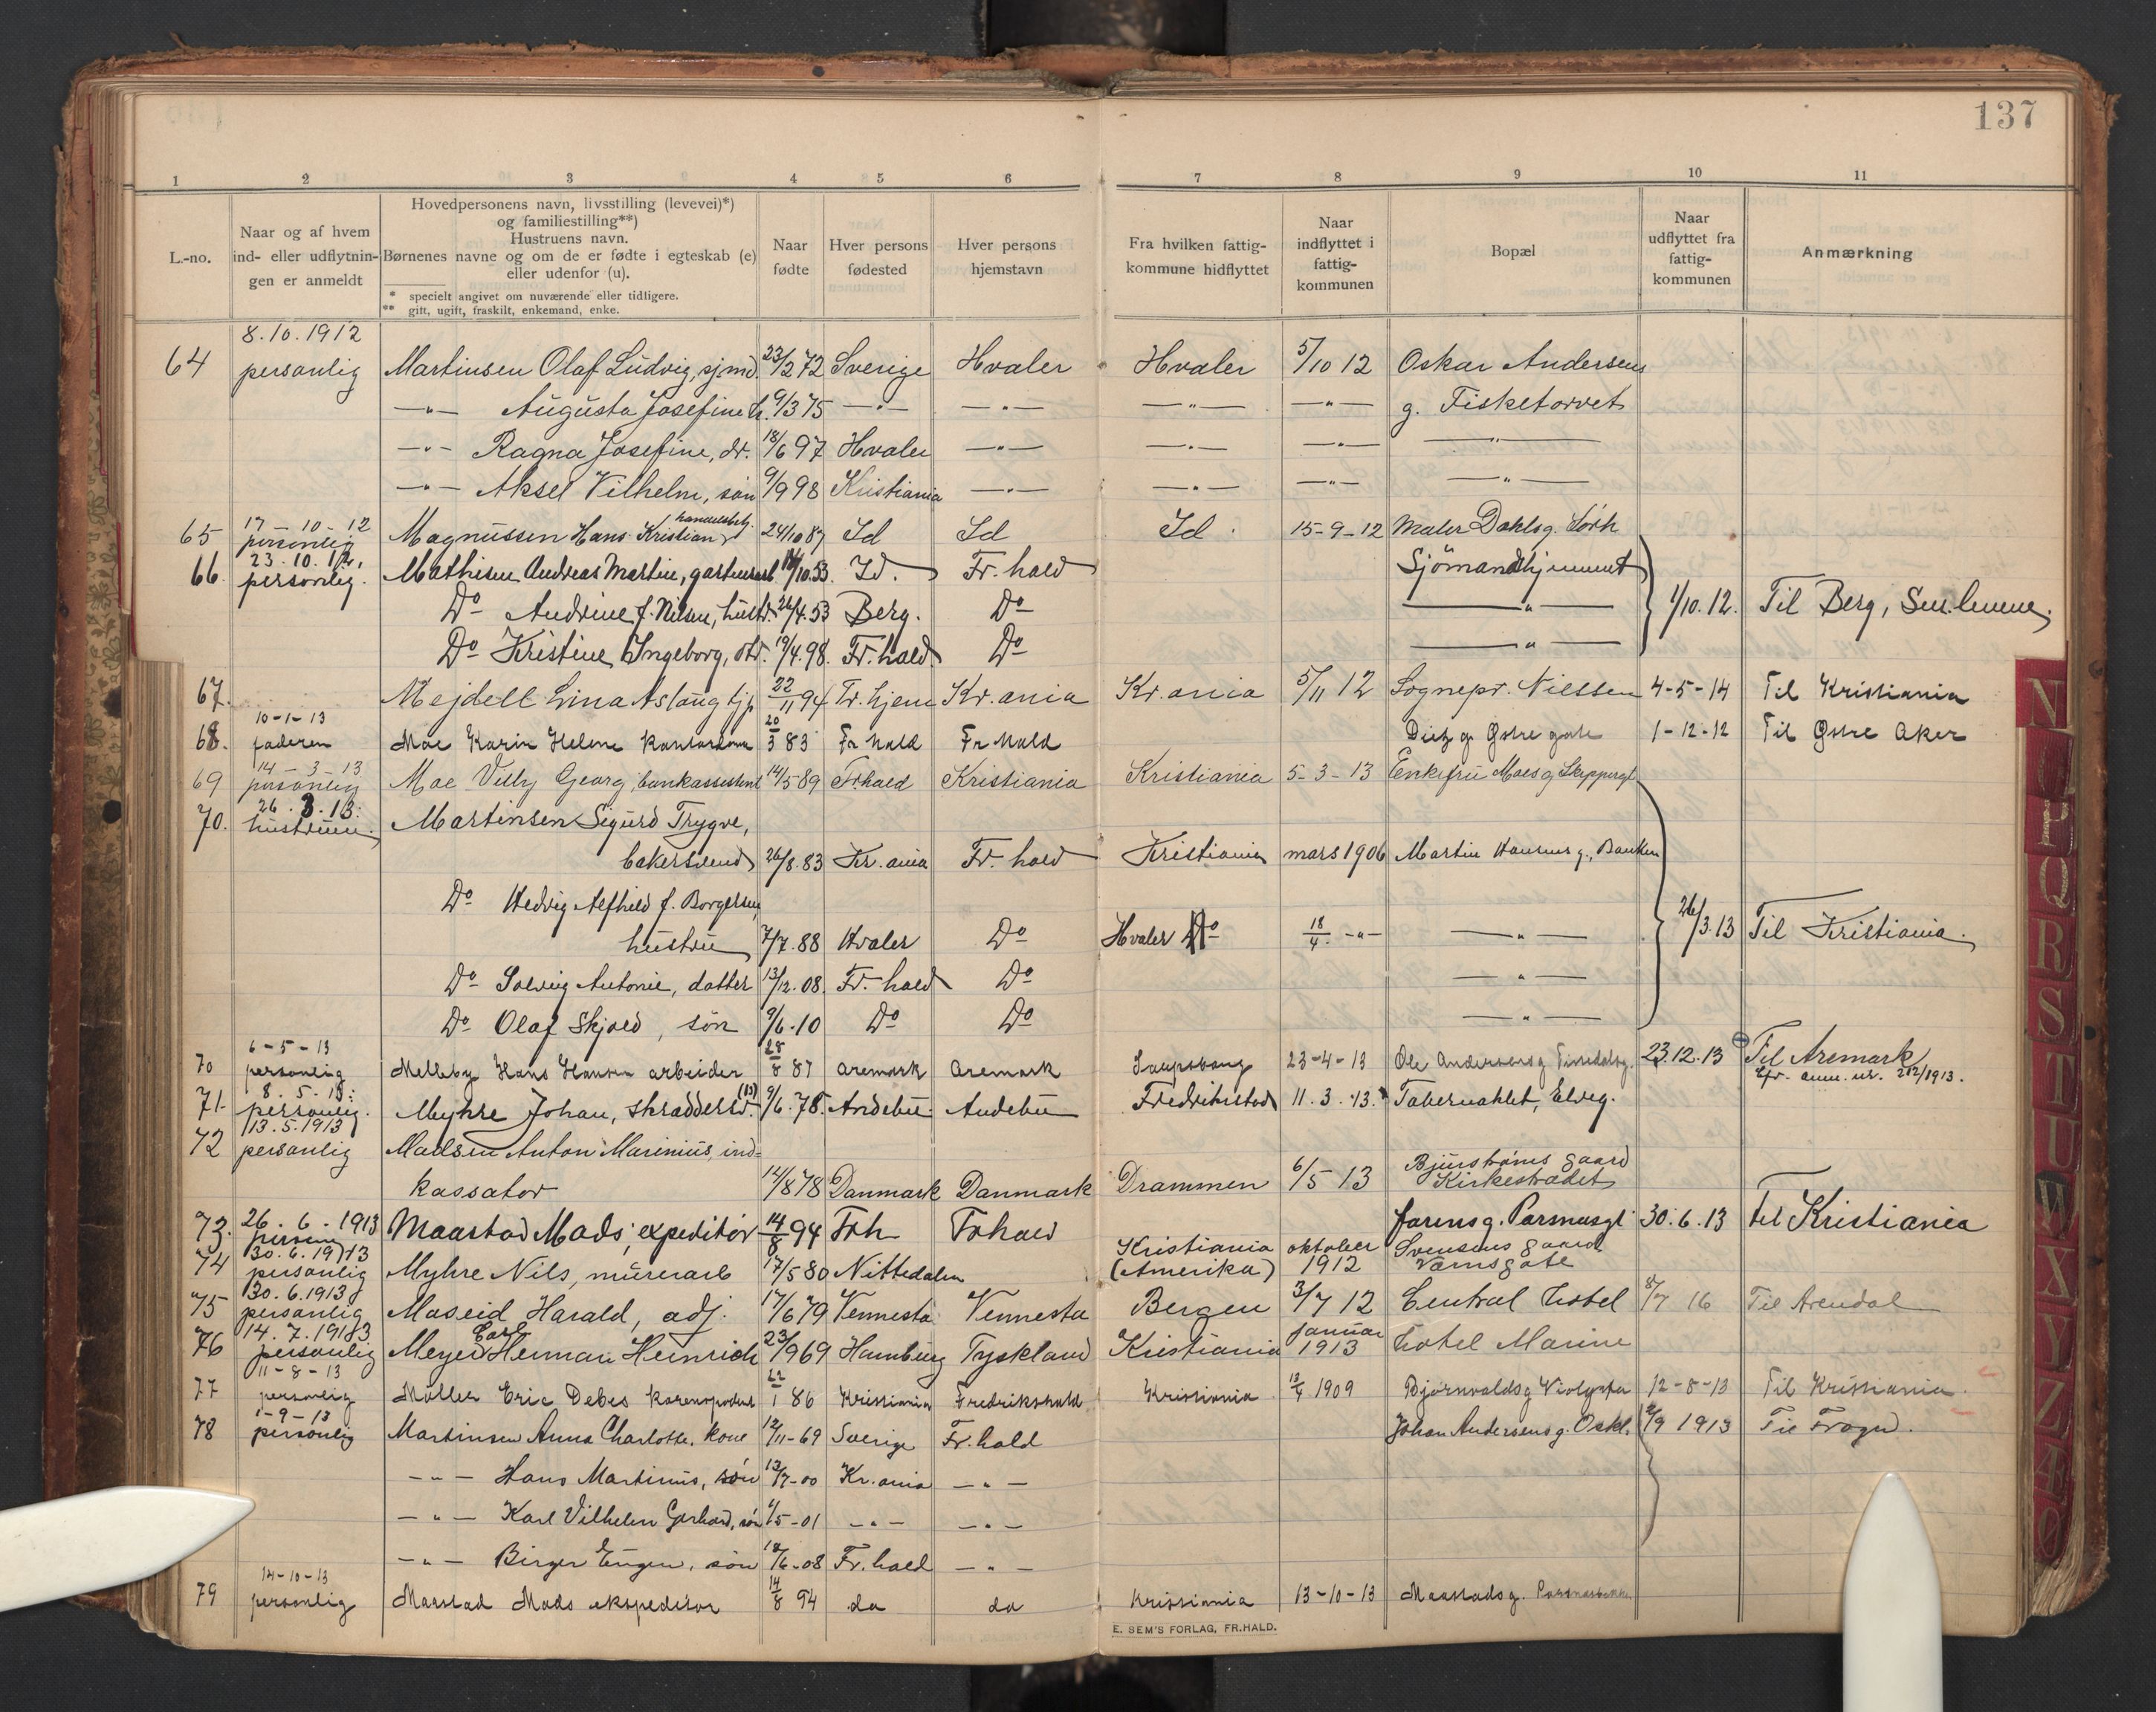 137
1 2 3 4 5 6 7 8 9 10 11
L.-no.
Naar og af hvem
ind- eller udflytnin-
gen er anmeldt
Hovedpersonens navn, livsstilling (levevei)*)
og familiestilling**)
Hustruens navn.
Børnenes navne og om de er fødte i egteskab (e)
eller udenfor (u).
* specielt angivet om nuværende eller tidligere.
** gift, ugift, fraskilt, enkemand, enke.
Naar
fødte
Hver persons
fødested
Hver persons
hjemstavn
Fra hvilken fattig-
kommune hidflyttet
Naar
indflyttet i
fattig-
kommunen
Bopæl
Naar
udflyttet fra
fattig-
kommunen
Anmærkning
8.10.1912
64 personlig Martinsen Olaf Ludvig, sjmd. 23/2 72 Sverige Hvaler Hvaler 5/10 12 Oskar Andersens
—"— Augusta Josefine h. 9/3 75 —"— —"— —"— —"— g. Fisketorvet
—"— Ragna Josefine, dr. 18/6 97 Hvaler —"— —"— —"— —"—
—"— Aksel Vilhelm, søn 9/9 98 Kristiania —"— —"— —"— —"—
17-10-12 handelsbetj.
65 personlig Magnussen Hans Kristian 24/10 87 Id Id Id 15-9-12 Maler Dahlsg.
23.10.12.
66. personlig. Mathisen Andreas Martin, 10.53. Id. Fr.hald Sjömandshjemmet
Do Andrine f. Nilsen, hustr. 26/4.53 Berg. Do —"— 1/10.12. Til Berg,
Do Kristine Ingeborg, dtr. 19/4.98. Fr.hald Do —"—
67. Mejdell Lina Aslaug tjp 22/11 94 Kr.ania Kr.ania 5/11 12 Sognepr. Nielsen 4-5-14 Til Kristiania
10-1-13
68. faderen Moe Karin Helene kontordame 20/3 83 Fr hald Fr hald Dietz g Østre gate 1-12-12 Til Østre Aker
14-3-13
69 personlig Moe Villy Georg, bankassistent 14/5 89 Fr.hald Kristiania Kristiania 5-3-13 Enkefru Moes g
26.3.13.
70. hustruen. Martinsen Sigurd Trygve,
bakersvend 26/8.83 Kr.ania Fr.hald Kristiania mars 1906 Martin Hansens g., Banken
Do Hedvig Alfhild f. Borgersen,
hustru 7/7.88 Hvaler Do Hvaler Do 18/4 -"- —"— 26/3.13 Til Kristiania.
Do Solveig Antonie, datter 13/12.08. Fr.hald Do —"—
Do Olaf Skjold, søn 9/6.10 Do Do —"—
6-5-13
70 personlig Melleby Hans Hansen arbeider 28/8 87 Aremark Aremark Sarpsborg 23-4-13 Ole Andersens g 23.12.13 Til Aremark
cfr. anm. nr. 212/1913.
8.5.13.
71. personlig. Myhre Johan, skræddersv. 9/6.78. Andebu Andebu Fredrikstad 11.3.13. Tabernaklet, Elveg.
13.5.1913
72 personlig Madsen Anton Marinius, ind=
kassator 14/8 78 Danmark Danmark Drammen 6/5 13 Bjurstrøms gaard
Kirkestrædet
26.6.1913
73. Maastad Mads, expeditør 14/8 94 Frh Frhald farens g. 30.6.13 til Kristiania
30.6.1913
74 personlig Myhre Nils, murerarb 17/5 80 Nittedalen Kristiania oktober Svensens gaard
(Amerika) 1912 Værnsgate
30.6.1913
75 personlig Maseid Harald, adj. 17/6 79 Vennesla Vennesla Bergen 3/7 12 Central Hotel 8/7 16 Til Arendal
14.7.1913 Carl
76 personlig Meyer Herman Heinrich 23/9 69 Hamburg Tyskland Kristiania januar 1913 Hotel Marine
11-8-13
77 personlig Møller Eric Debes korrespondent 22/1 86 Kristiania Fredrikshald Kristiania 13/4 1909 12-8-13 Til Kristiania.
1-9-13
78 personlig Martinsen Anna Charlotte, kone 12/11-69 Sverige Fr.hald Johan Andersens g. Oskl. 2/9 1913 Til Frogn.
—"— Hans Martinus, søn 12/7-00 Kr.ania —"—
—"— Karl Vilhelm Gerhard, søn 4/5-01 —"— —"—
—"— Birger Eugen, søn 18/6-08 Fr.hald —"—
14-10-13
79 personlig Maastad Mads ekspeditør 14/8 94 do do Kristiania 13-10-13 Maastads g.
E. SEM'S FORLAG, FR.HALD.
N P Q R S T U W X Y Z Æ Ø